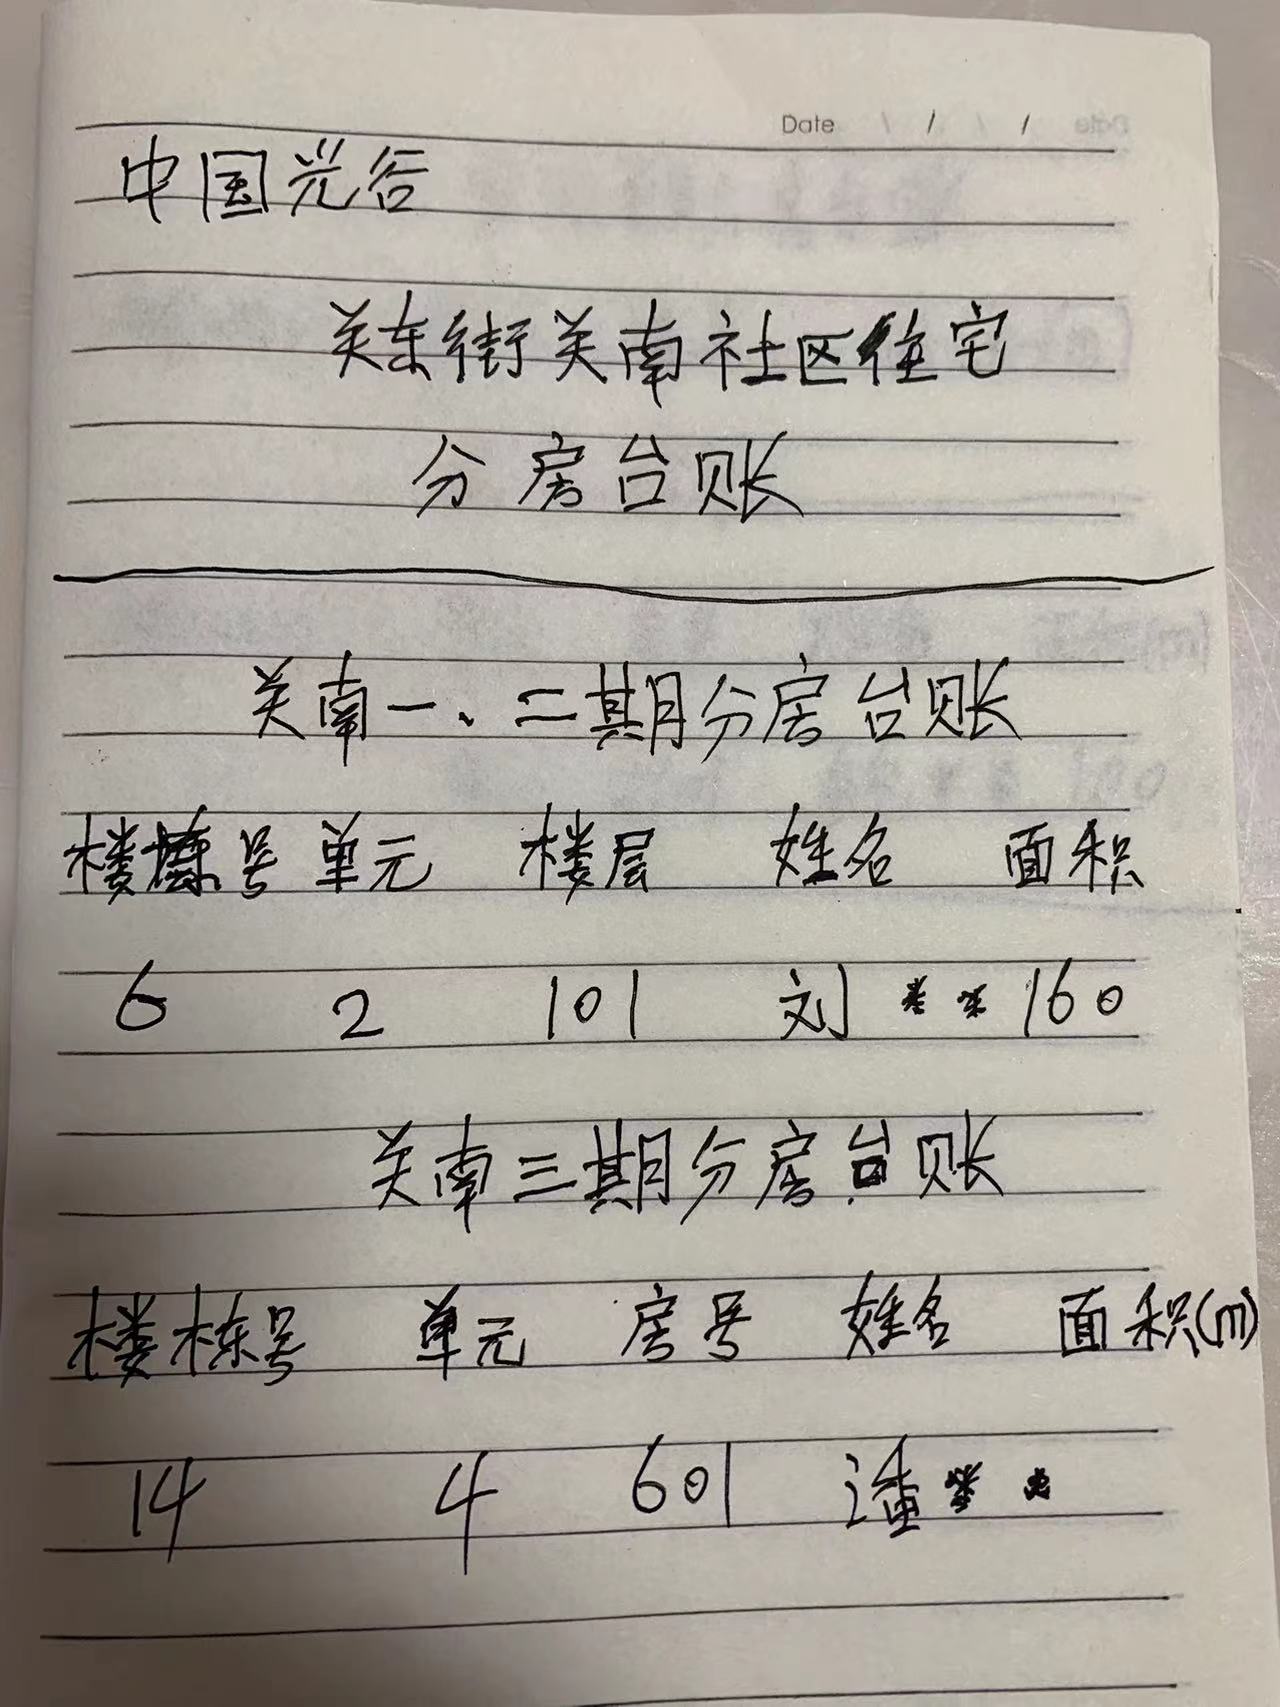 Date / / / /
中国光谷
关东街关南社区住宅
分房台账
关南一、二期分房台账
楼栋号 单元 楼层 姓名 面积
6 2 101 刘** 160
关南三期分房台账
楼栋号 单元 房号 姓名 面积(m)
14 4 601 潘**